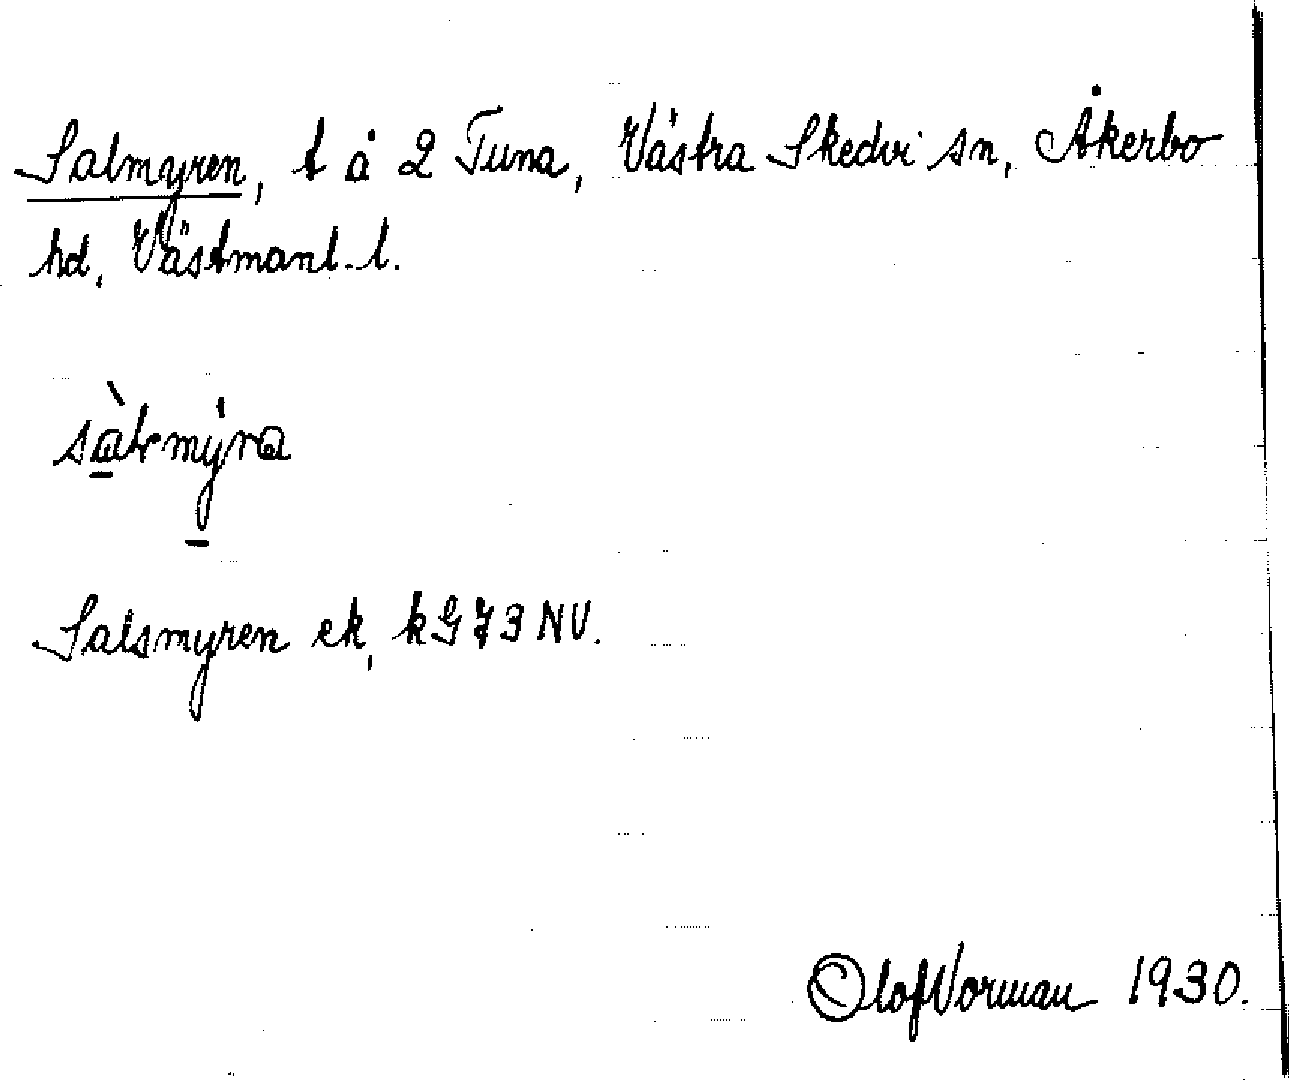 Salmyren, t å 2 Tuna, Västra Skedvi sn, Åkerbo
hd, Västmanl. l.
Salsmyren ek, kG 73 NV.
Olof Norman 1930.